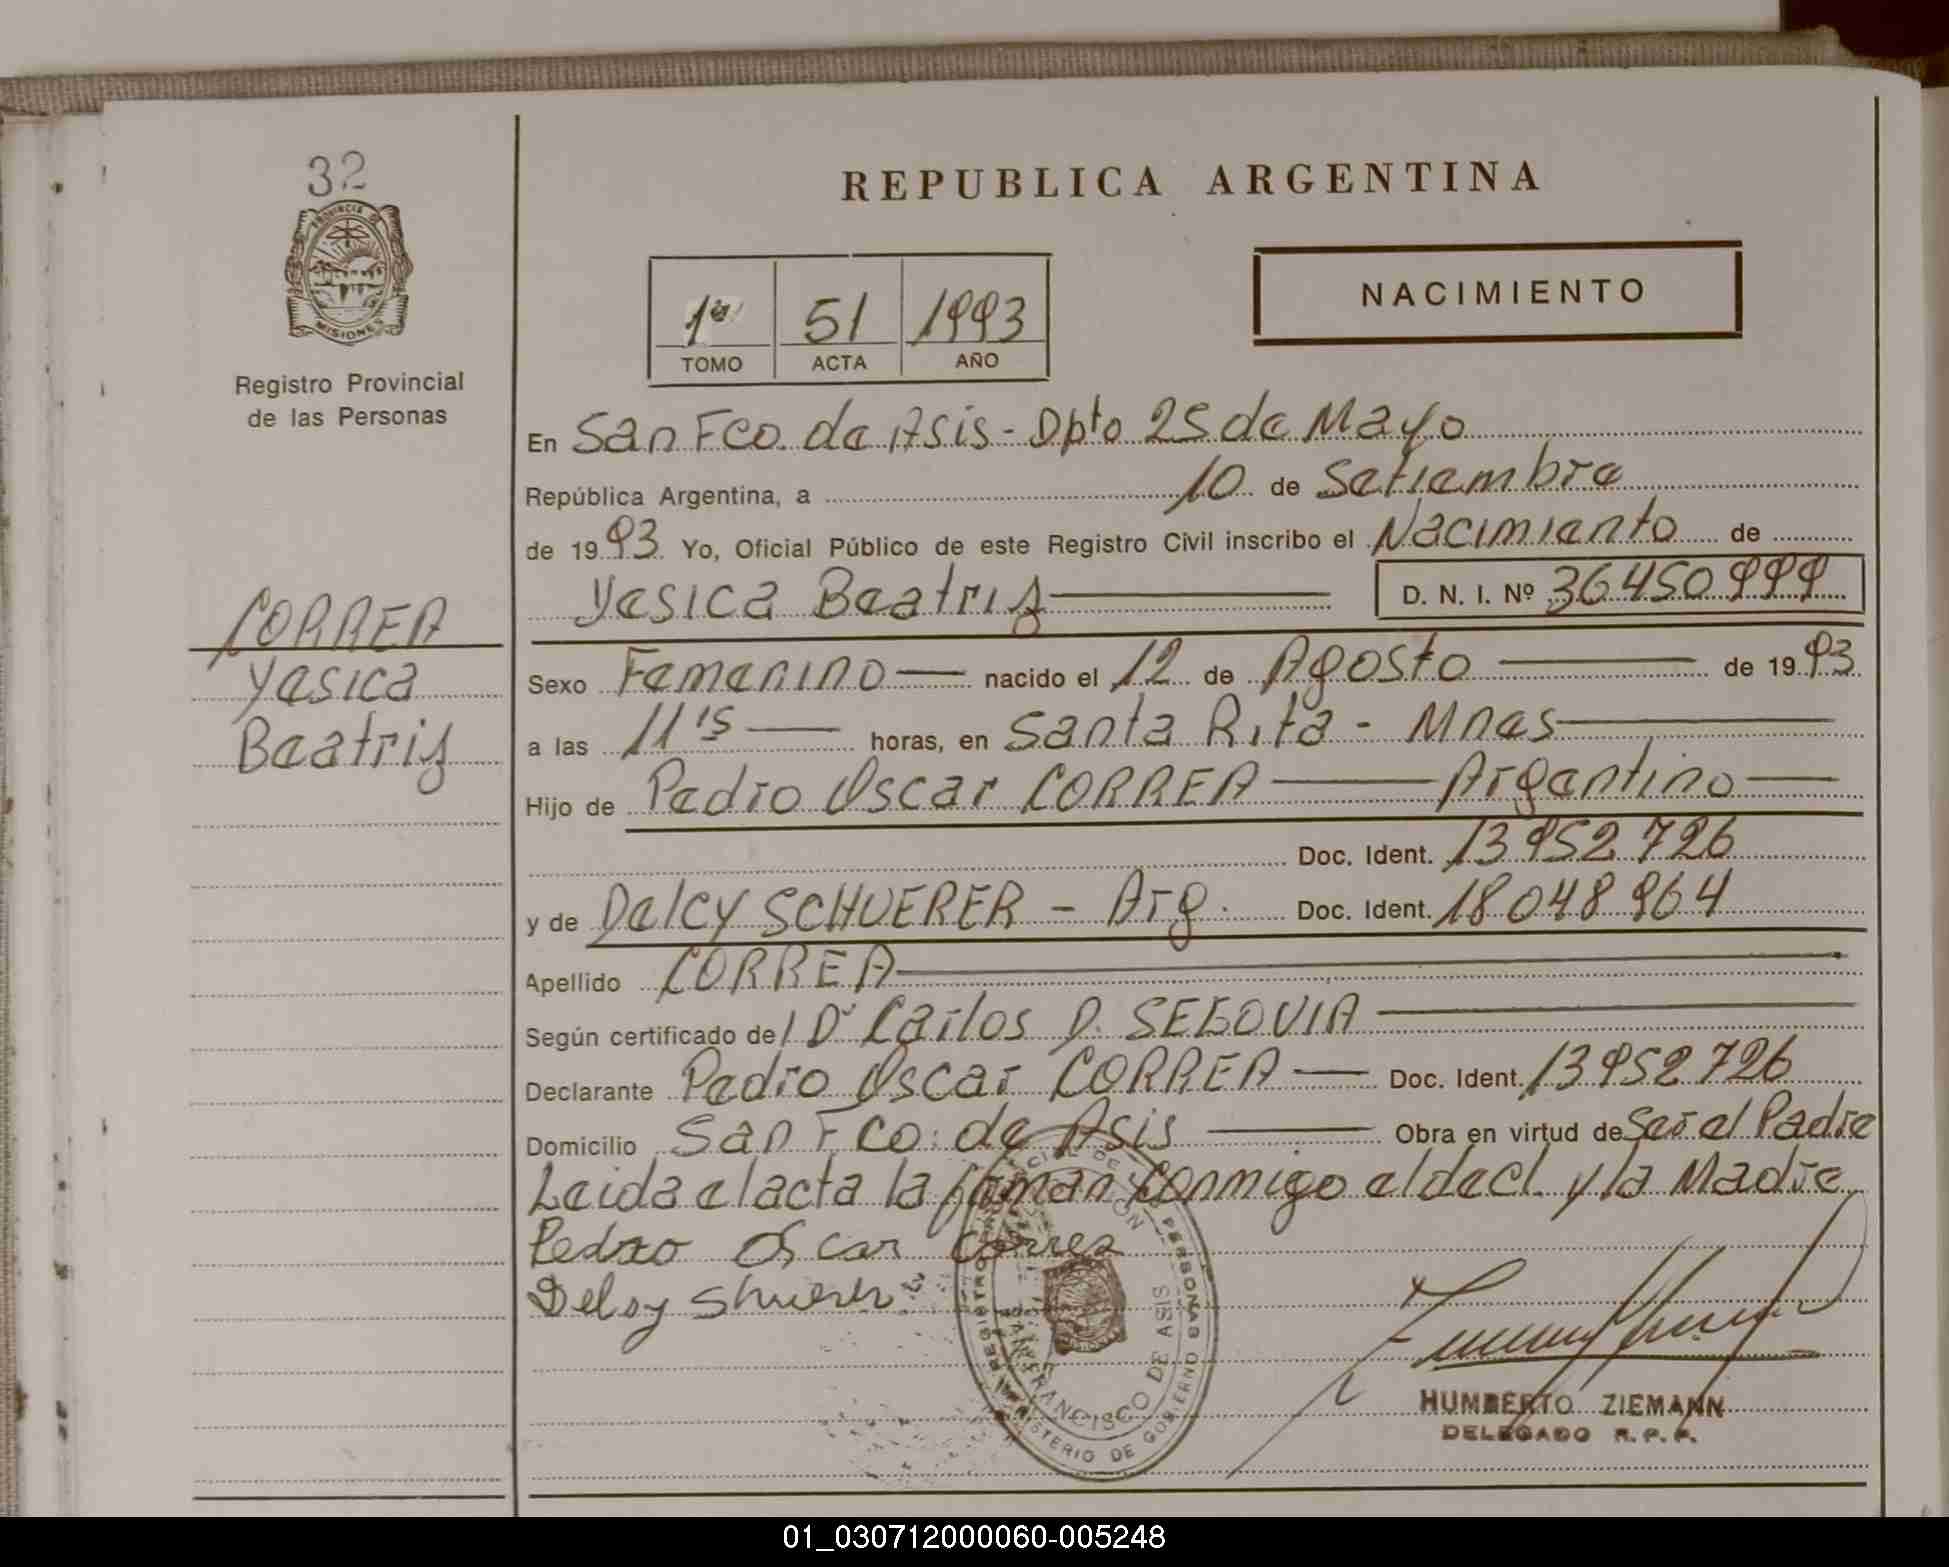 32
PROVINCIA DE
MISIONES
Registro Provincial
de las Personas
CORREA
Yesica
Beatriz
REPUBLICA ARGENTINA
1º 51 1993
TOMO ACTA AÑO
NACIMIENTO
En San Fco. de Asis - Dpto 25 de Mayo
República Argentina, a 10 de Setiembre
de 1993 Yo, Oficial Público de este Registro Civil inscribo el Nacimiento de
Yesica Beatriz D. N. I. Nº 36450999
Sexo Femenino nacido el 12 de Agosto de 1993
a las 11'15 horas, en Santa Rita - Mnes
Hijo de Pedro Oscar CORREA Argentino
Doc. Ident. 13952726
y de Delcy SCHUERER - Arg. Doc. Ident. 18048964
Apellido CORREA
Según certificado del Dr Carlos D. SEGOVIA
Declarante Pedro Oscar CORREA Doc. Ident. 13952726
Domicilio San Fco. de Asis Obra en virtud de Ser el Padre
Leida el acta la firman conmigo el decl. y la Madre
Pedro Oscar Correa
Delsy Shuerer
SAN FRANCISCO DE ASIS
MINISTERIO DE GOBIERNO
HUMBERTO ZIEMANN
DELEGADO R.P.P.
01_030712000060-005248